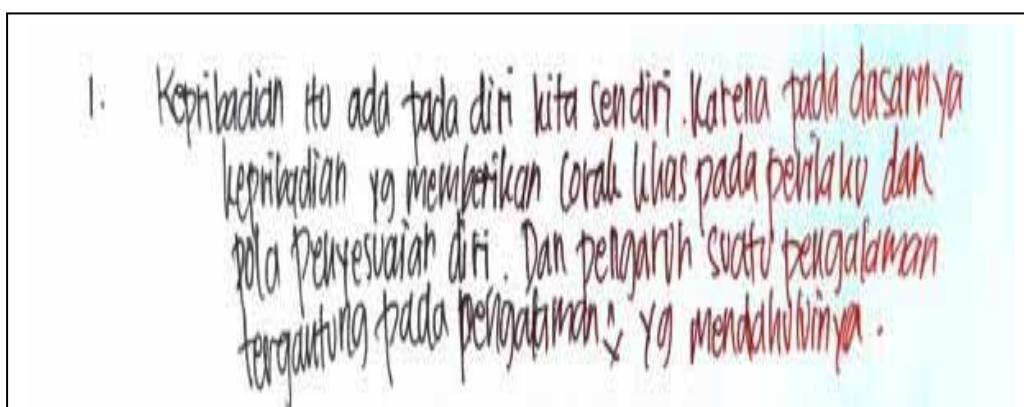 1. Kepribadian itu ada pada diri kita sendiri. Karena pada dasarnya
kepribadian yg memberikan corak khas pada perilaku dan
pola penyesuaian diri. Dan pengaruh suatu pengalaman
tergantung pada pengalaman² yg mendahuluinya.